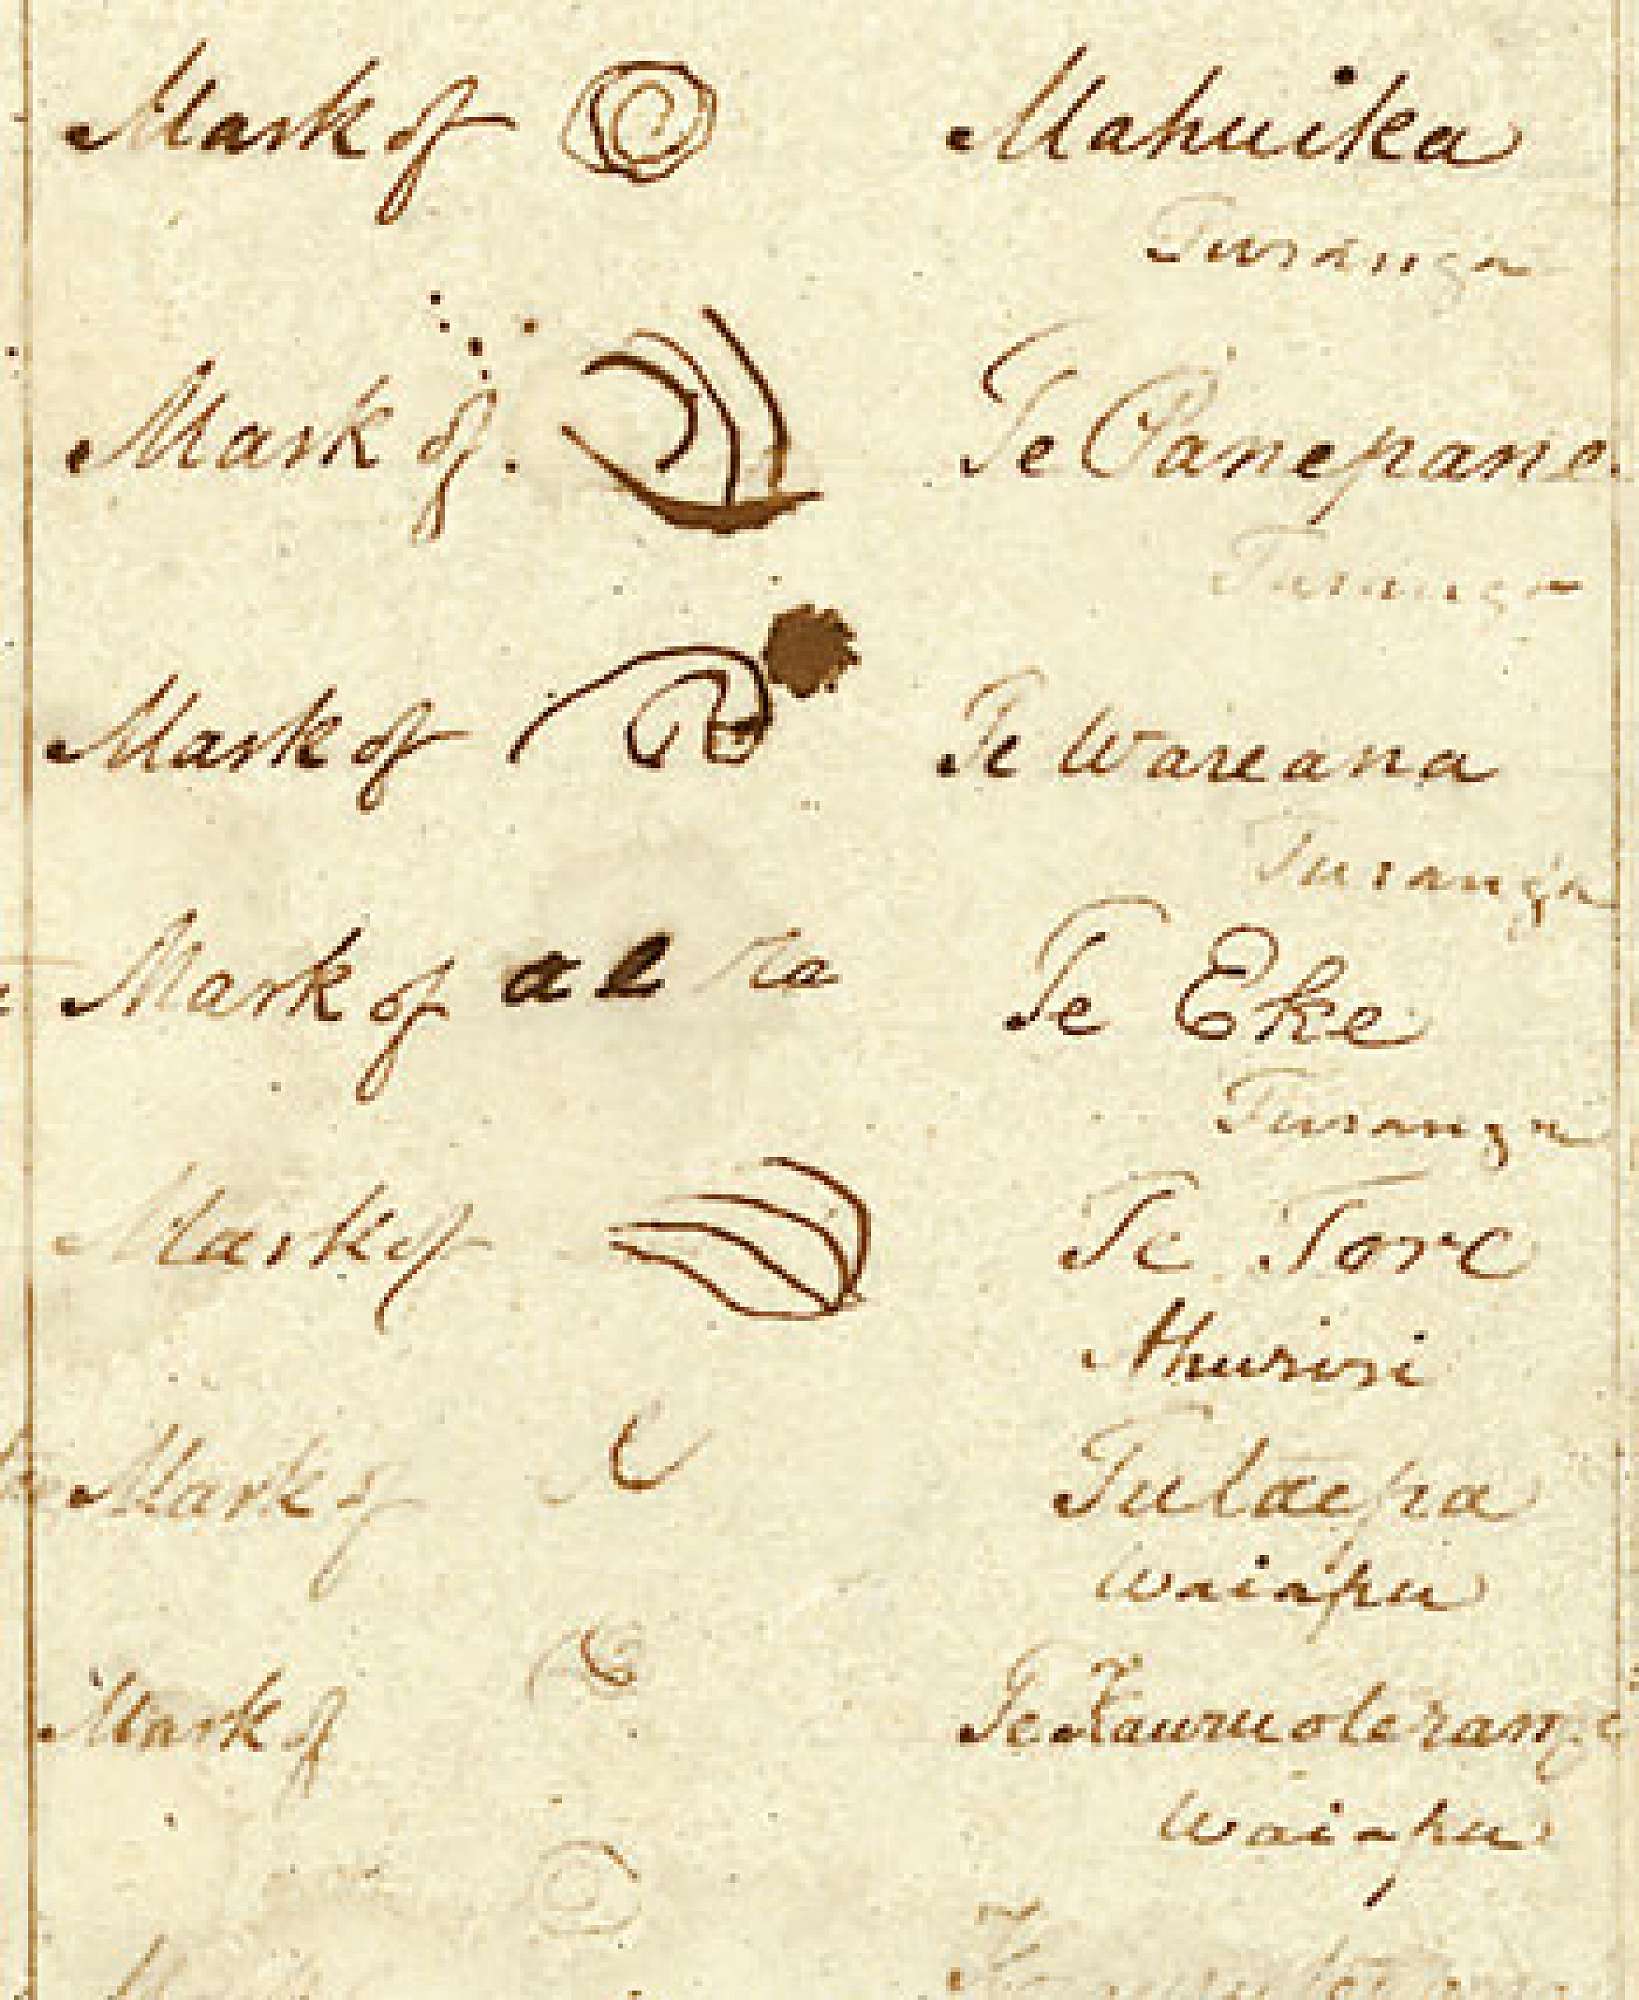 Mark of Mahuika
Turanga
Mark of Te Panepane
Turanga
Mark of Te Wareana
Turanga
Mark of a e Te Eke
Turanga
Mark of Te Tore
Ahuriri
Mark of Tutaepa
Waiapu
Mark of
Waiapu